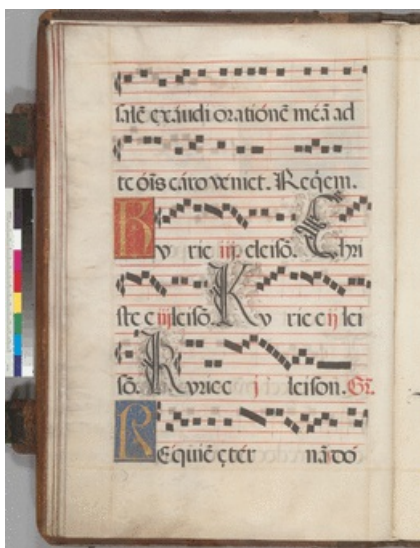 salē exáudi oratiónē meā ad
te oīs cáro véniet. Reqēm.
Ky rie iij eleisō. Chri
ste e iij leisō. Ky rie e ij lei
sō. Kyrie e j leison. Gr.
Réquiē etér nā dó